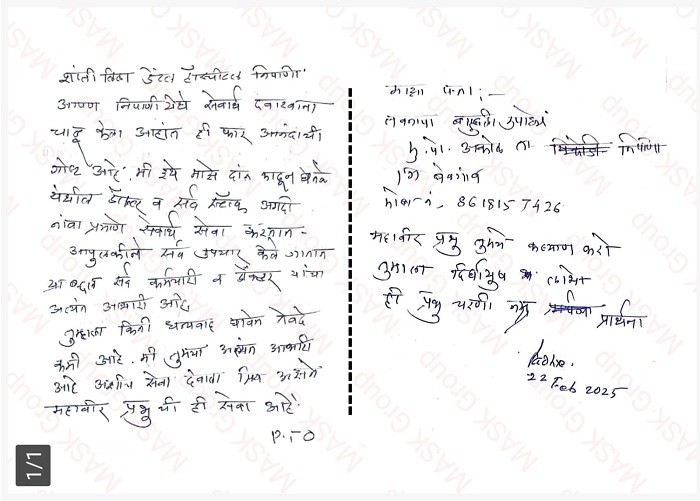 शांती विद्या डेंटल हॉस्पीटल निपाणी
आपण निपाणी येथे सेवार्थ दवाखाना
चालू केला आहात ही फार आनंदाची
गोष्ट आहे. मी इथे माझे दांत काढून घेतले
येथील डॉक्टर व सर्व स्टाफ अगदी
नांवा प्रमाणे सेवार्थ सेवा करतात -
आपुलकीने सर्व उपचार केले जातात
या बद्दल सर्व कर्मचारी व डॉक्टर यांचा
अत्यंत आभारी आहे.
तुम्हाला किती धन्यवाद द्यावेत तेवढे
कमी आहे. मी तुमचा अत्यंत आभारी
आहे अशीच सेवा देवाला प्रिय असते
महावीर प्रभु ची ही सेवा आहे.
P.T.O
माझा पत्ता :-
मु. पो. अकोळ ता निपाणी
जि बेळगांव
मोबा-नं. 8618157426
महावीर प्रभु तुमचे कल्याण करो
तुम्हाला दिर्घायुष लाभो
ही प्रभु चरणी नम्र प्रार्थना
22 Feb 2025
1/1
MASK Group